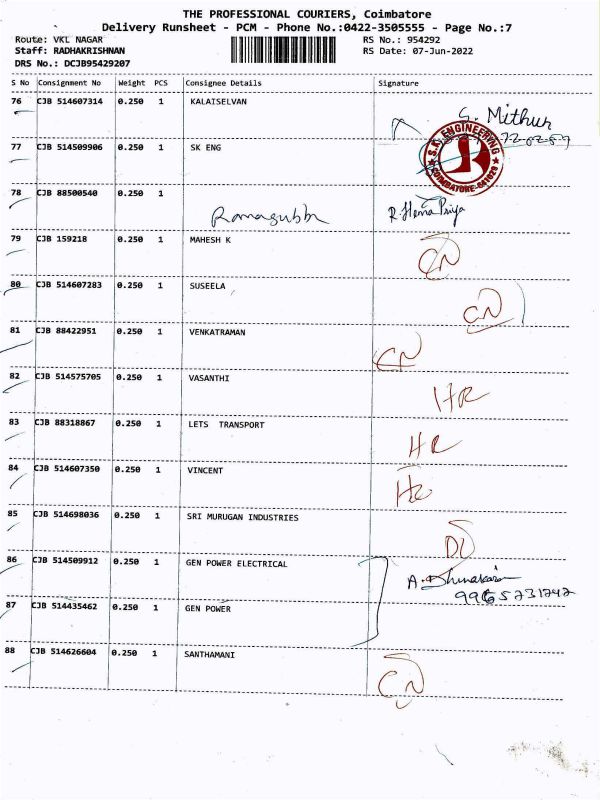 THE PROFESSIONAL COURIERS, Coimbatore
Delivery Runsheet - PCM - Phone No.:0422-3505555 - Page No.:7
Route: VKL NAGAR RS No.: 954292
Staff: RADHAKRISHNAN RS Date: 07-Jun-2022
DRS No.: DCJB95429207
S No Consignment No Weight PCS Consignee Details Signature
76 CJB 514607314 0.250 1 KALAISELVAN
S. Mithun
77 CJB 514509906 0.250 1 SK ENG
S.K. ENGINEERING COIMBATORE-641029
78 CJB 88500540 0.250 1
Ramasubbu R. Hema Priya
79 CJB 159218 0.250 1 MAHESH K
CN
80 CJB 514607283 0.250 1 SUSEELA
CN
81 CJB 88422951 0.250 1 VENKATRAMAN
CN
82 CJB 514575705 0.250 1 VASANTHI
HR
83 CJB 88318867 0.250 1 LETS TRANSPORT
HR
84 CJB 514607350 0.250 1 VINCENT
HR
85 CJB 514698036 0.250 1 SRI MURUGAN INDUSTRIES
DL
86 CJB 514509912 0.250 1 GEN POWER ELECTRICAL
A.
87 CJB 514435462 0.250 1 GEN POWER
88 CJB 514626604 0.250 1 SANTHAMANI
CN